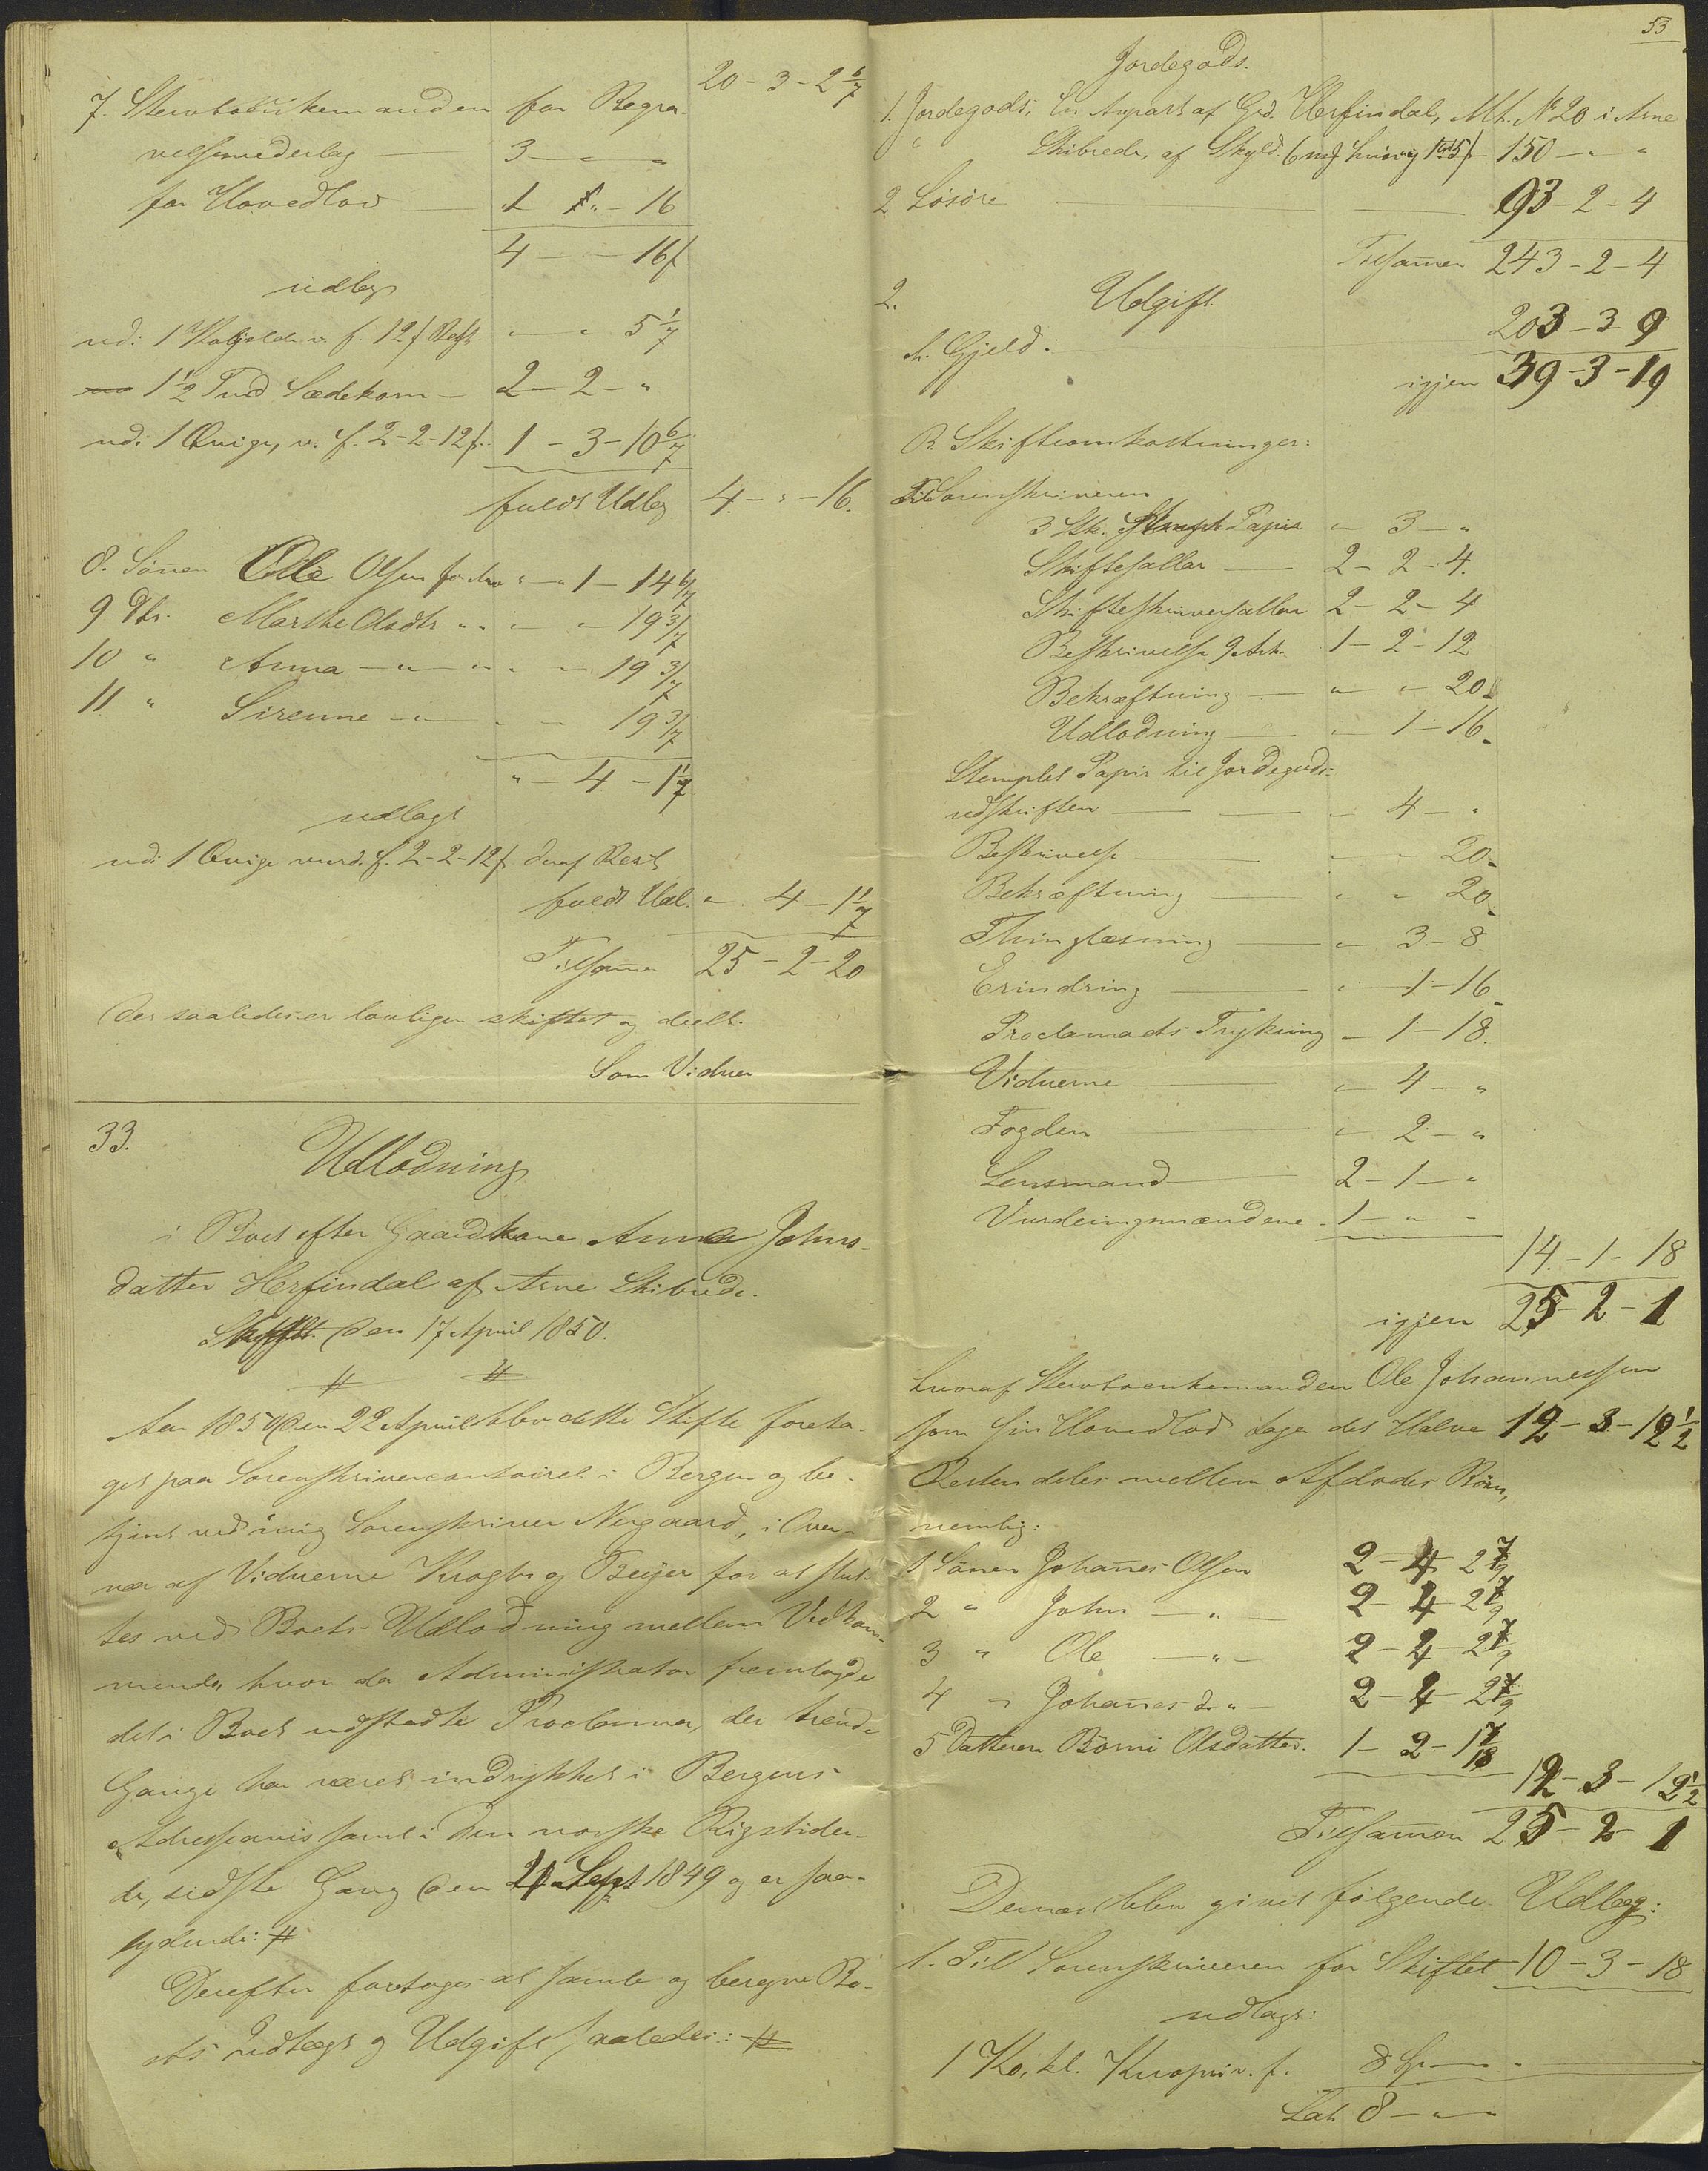 20 - 3 - 2 6/7
7. Stervboenkemanden for Begra-
velsesvederlag — 3 - " - "
for Hovedlod — 1 - " - 16
4 - " - 16 f
udlagt
ud: 1 v. f. 12 f Rest " - " 5 1/7
1 1/2 Tnd Sædekorn - 2 - 2 - "
udi 1 Qvige, v. f. 2-2-12 f. 1 - 3 - 10 6/7
fuldt Udlæg 4 - " - 16.
8. Sönnen Olle Olsen for Arv " - 1 - 14 6/7
9 Dtr. Marthe Olsdtr " " - " - 19 3/7
10 " Anna — " — " - " - 19 3/7
11 " Sirenne - " - " - 19 3/7
" - 4 - 1 1/7
udlagt
udi 1 Qvige vurd. f. 2-2-12 f. deraf Rest
fuldt Udl. " - 4 - 1 1/7
Tilsam̄en 25 - 2 - 20
Der saaledes er lovligen skiftet og deelt.
Som Vidner
33.
Udlodning
i Boet efter Gaardkone Anna Johns-
datter Herfindal af Arne Skibrede.
den 17 April 1850.
# #
Aar 1850 den 22 April blev dette Skifte foreta-
get paa Sorenskrivercontoiret i Bergen og be-
tjent ved mig Sorenskriver Nergaard, i Over-
vær af Vidnerne Krogh og Beyer for at slut-
tes ved Boets Udlodning mellem Vedkom-
mende, hvor da Administrator fremlagde
det i Boet udstedte Proclama, der trende
Gange har været indrykket i Bergens
Adresseavis samt i Den norske Rigstiden-
de, sidste Gang den 21 Sept 1849 og er saa-
lydende: #
Derefter foretoges at samle og beregne Bo-
ets Indtægt og Udgift saaledes: #
53
Jordegods.
1. Jordegods: En Anpart af Grd. Herfindal, Mt. No 20 i Arne
Skibrede, af Skyld 150 - " - "
2 Lösöre — 93 - 2 - 4
Tilsam̄en 243 - 2 - 4
2. Udgift.
A. Gjeld. — 203 - 3 - 9
igjen 39 - 3 - 19
B. Skifteomkostninger:
Til Sorenskriveren
3 Stk. Stemplt Papir " - 3 - "
Skiftesallar — 2 - 2 - 4.
Skifteskriversallar 2 - 2 - 4
Beskrivelse 9 Ark. 1 - 2 - 12
Bekræftning — " - " - 20
Udlodning — " - 1 - 16
Stemplet Papir til Jordegods-
udskriften — " - 4 - "
Beskrivelse — " - " - 20
Bekræftning — " - " - 20
Thinglæsning — " - 3 - 8
Erindring — " - 1 - 16
Proclamaets Trykning " - 1 - 18.
Vidnerne — " - 4 - "
Fogden — " - 2 - "
Lensmand — 2 - 1 - "
Vurderingsmændene - 1 - " - "
14 - 1 - 18
igjen 25 - 2 - 1
hvoraf Stervboenkemanden Ole Johannessen
som sin Hovedlod tager det Halve 12 - 3 - 12 1/2
Resten deles mellem Afdødes Börn,
nemlig:
1 Sönen Johan̄es Olsen 2 - 4 - 2 7/9
2 " John — " — 2 - 4 - 2 7/9
3 " Ole — " — 2 - 4 - 2 7/9
4 " Johan̄es d. " — 2 - 4 - 2 7/9
5 Datteren Börni Olsdatter. 1 - 2 - 1 7/18
12 - 3 - 12 1/2
Tilsam̄en 25 - 2 - 1
Dernæst blev givet følgende Udlæg:
1. Till Sorenskriveren for Skiftet 10 - 3 - 18
udlagt:
1 Ko, kl. v. f. 8 -
Lat. 8 - " -